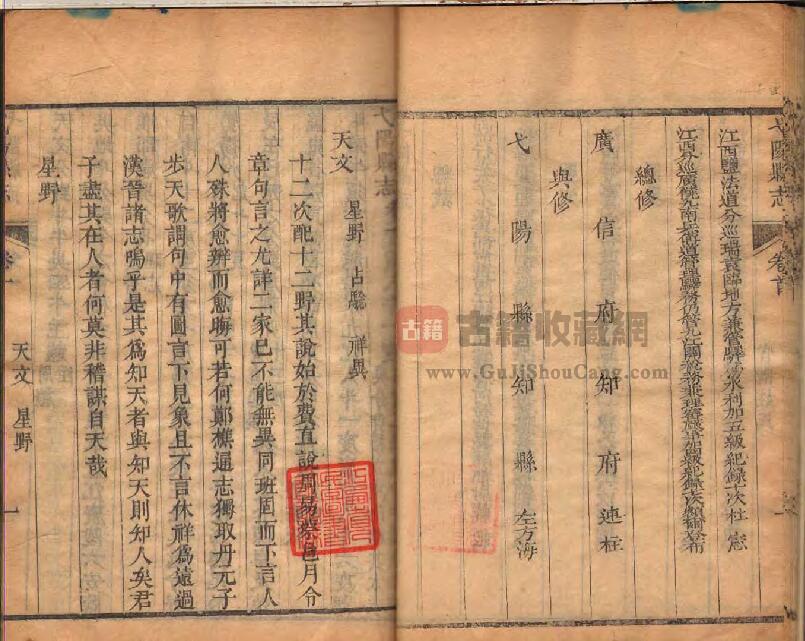 弋陽縣志
卷首
江西鹽法道分巡瑞袁臨地方兼管驛傳水利加五級紀錄十次杜 憲
江西分巡廣饒九南
總修
廣信府知府連柱
與修
弋陽縣知縣左方海
弋陽縣志
天文 星野 占驗 祥異
十二次配十二野其說始於費直說周易蔡邕月令
章句言之尤詳二家已不能無異同班固而下言人
人殊將愈辨而愈晦可若何鄭樵通志獨取丹元子
步天歌謂句中有圖言下見象且不言休祥為遠過
漢晉諸志嗚乎是其為知天者與知天則知人矣君
子盡其在人者何莫非稽謀自天哉
星野
卷一
天文 星野
一
古籍
古籍收藏網
www.GuJiShouCang.com